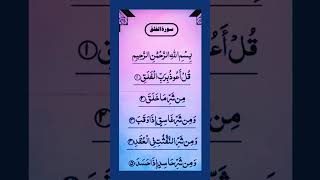 سورة الفلق
بِسْمِ اللّٰهِ الرَّحْمٰنِ الرَّحِيْمِ
قُلْ اَعُوْذُ بِرَبِّ الْفَلَقِ ۝١
مِنْ شَرِّ مَا خَلَقَ ۝٢
وَمِنْ شَرِّ غَاسِقٍ اِذَا وَقَبَ ۝٣
وَمِنْ شَرِّ النَّفّٰثٰتِ فِي الْعُقَدِ ۝٤
وَمِنْ شَرِّ حَاسِدٍ اِذَا حَسَدَ ۝٥